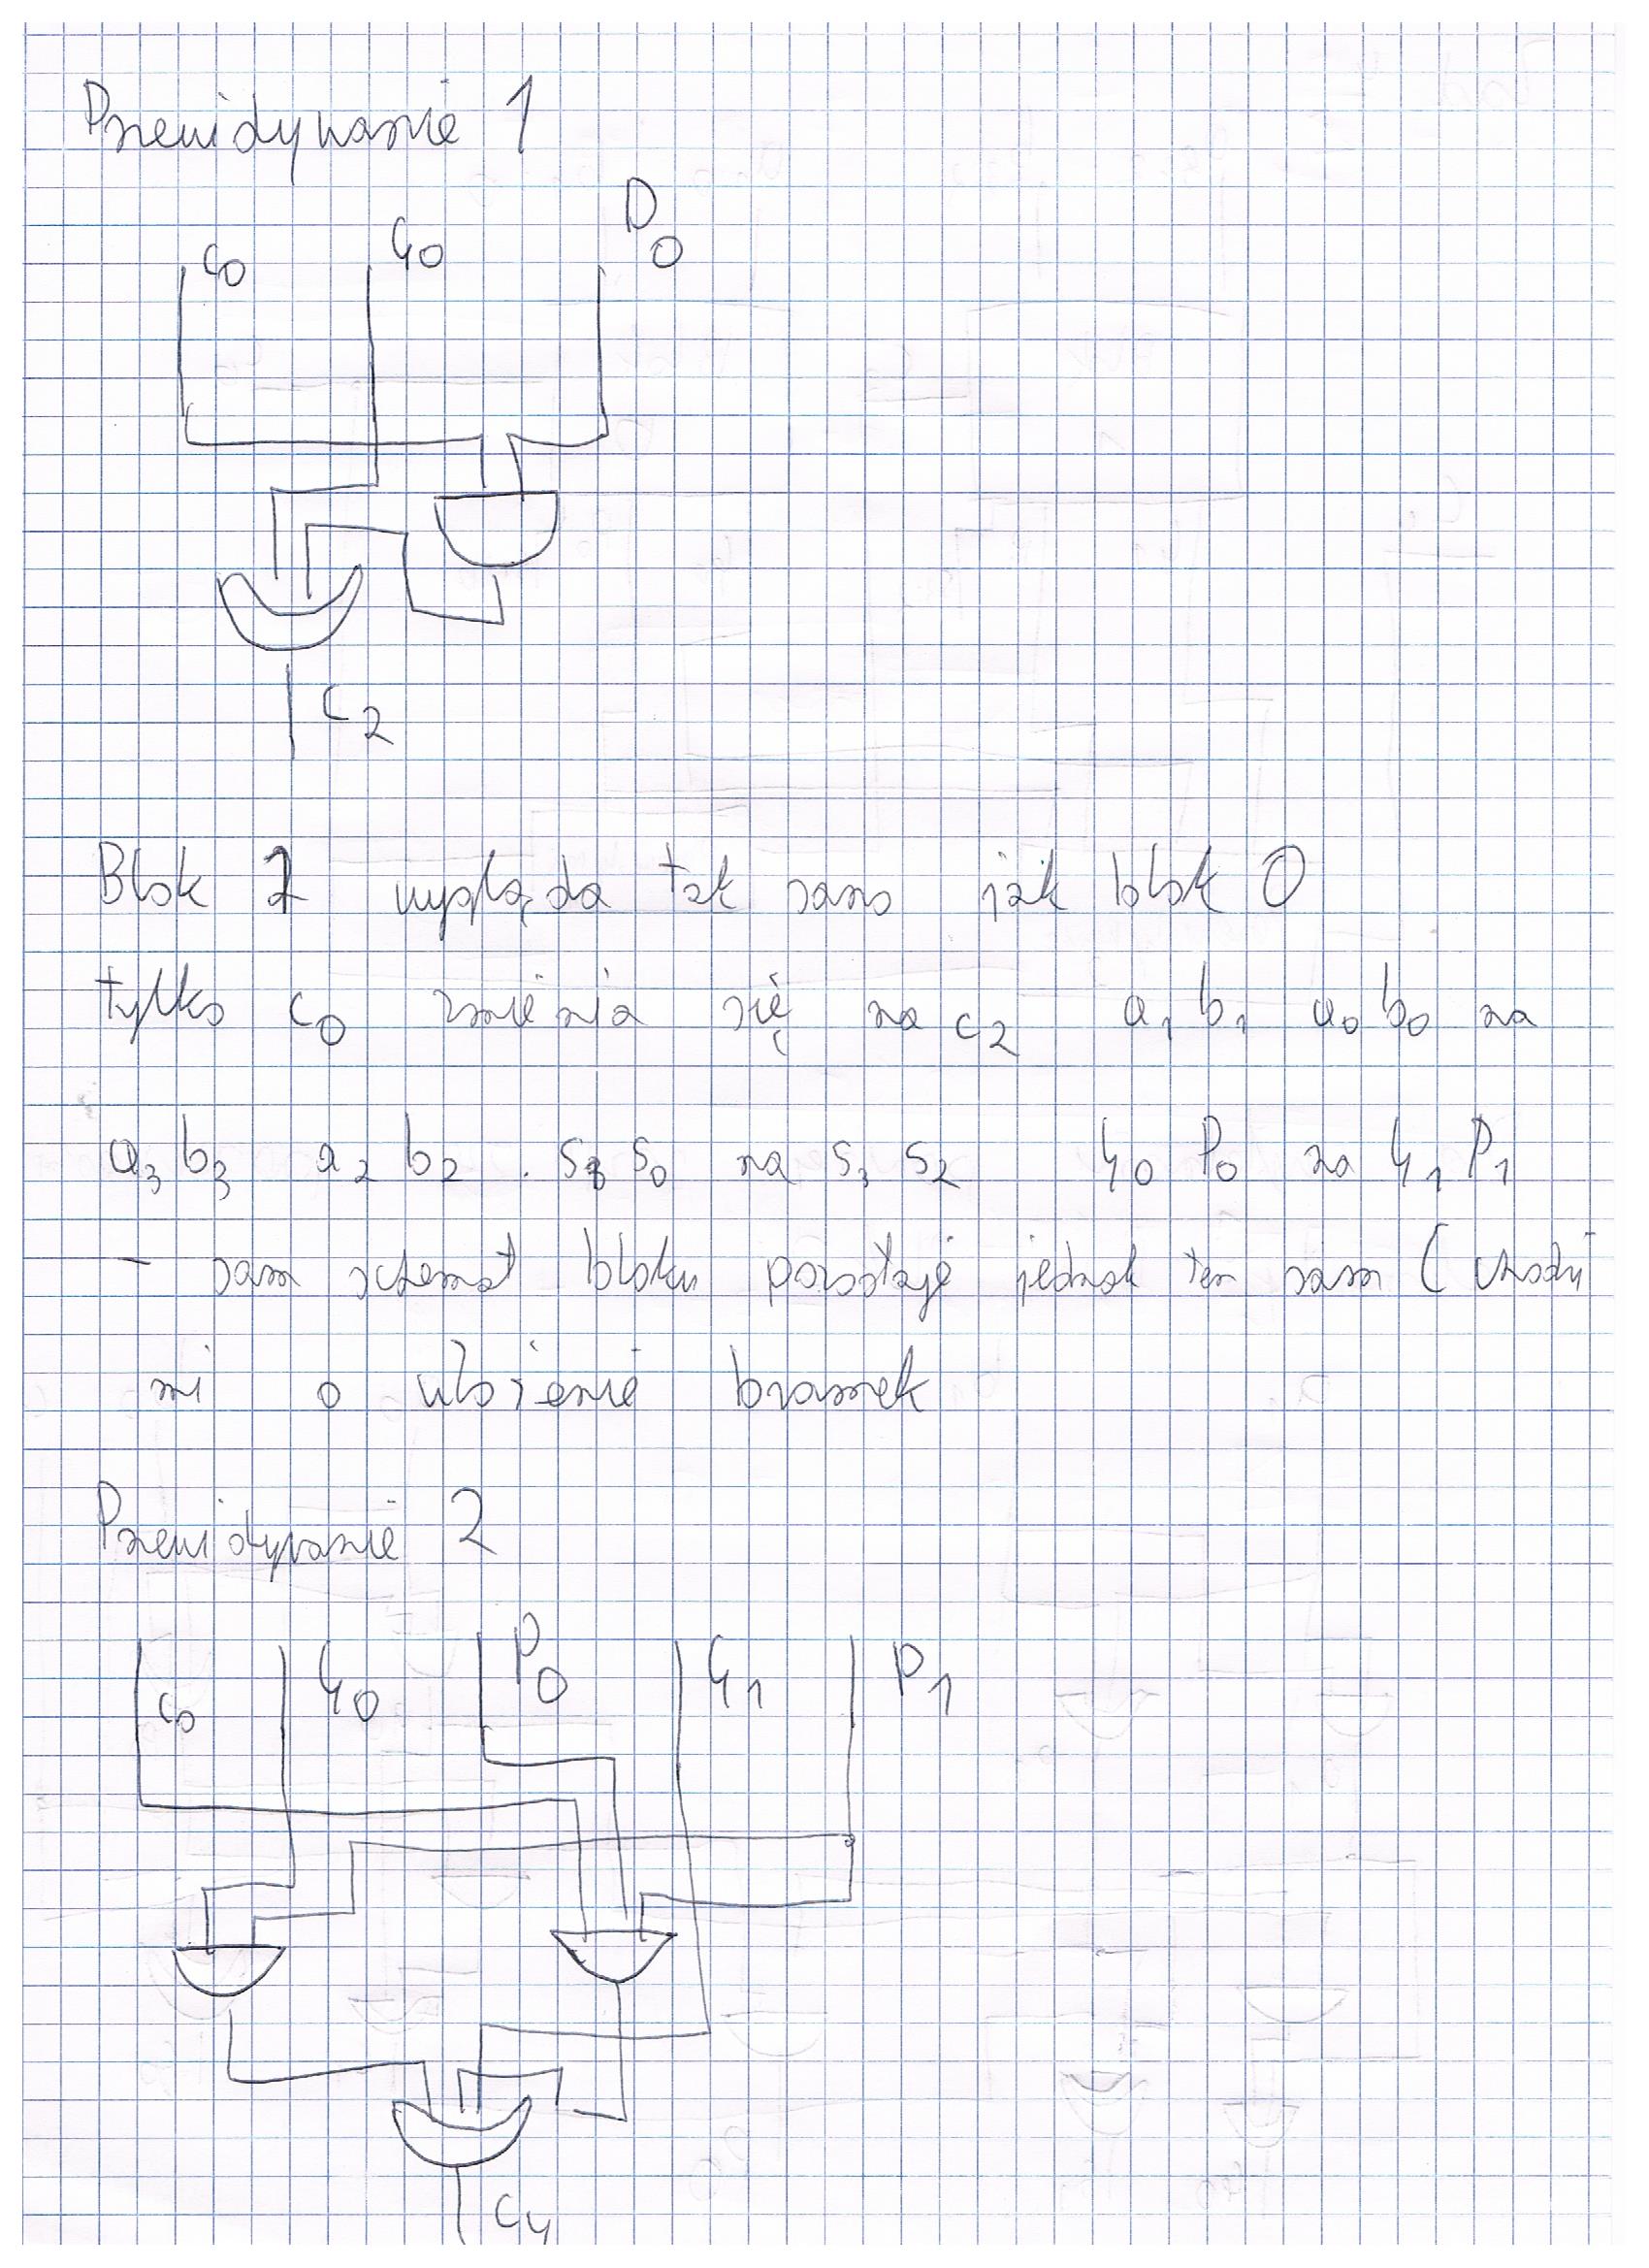 Przewidywanie 1
c0 G0 P0
c2
Blok 1 wygląda tak samo jak blok 0
tylko c0 zmienia się na c2 a1 b1 a0 b0 na
a3 b3 a2 b2 . s1 s0 na s3 s2 G0 P0 na G1 P1
- sam schemat bloku pozostaje jednak ten sam ( chodzi
mi o ułożenie bramek
Przewidywanie 2
c0 G0 P0 G1 P1
c4